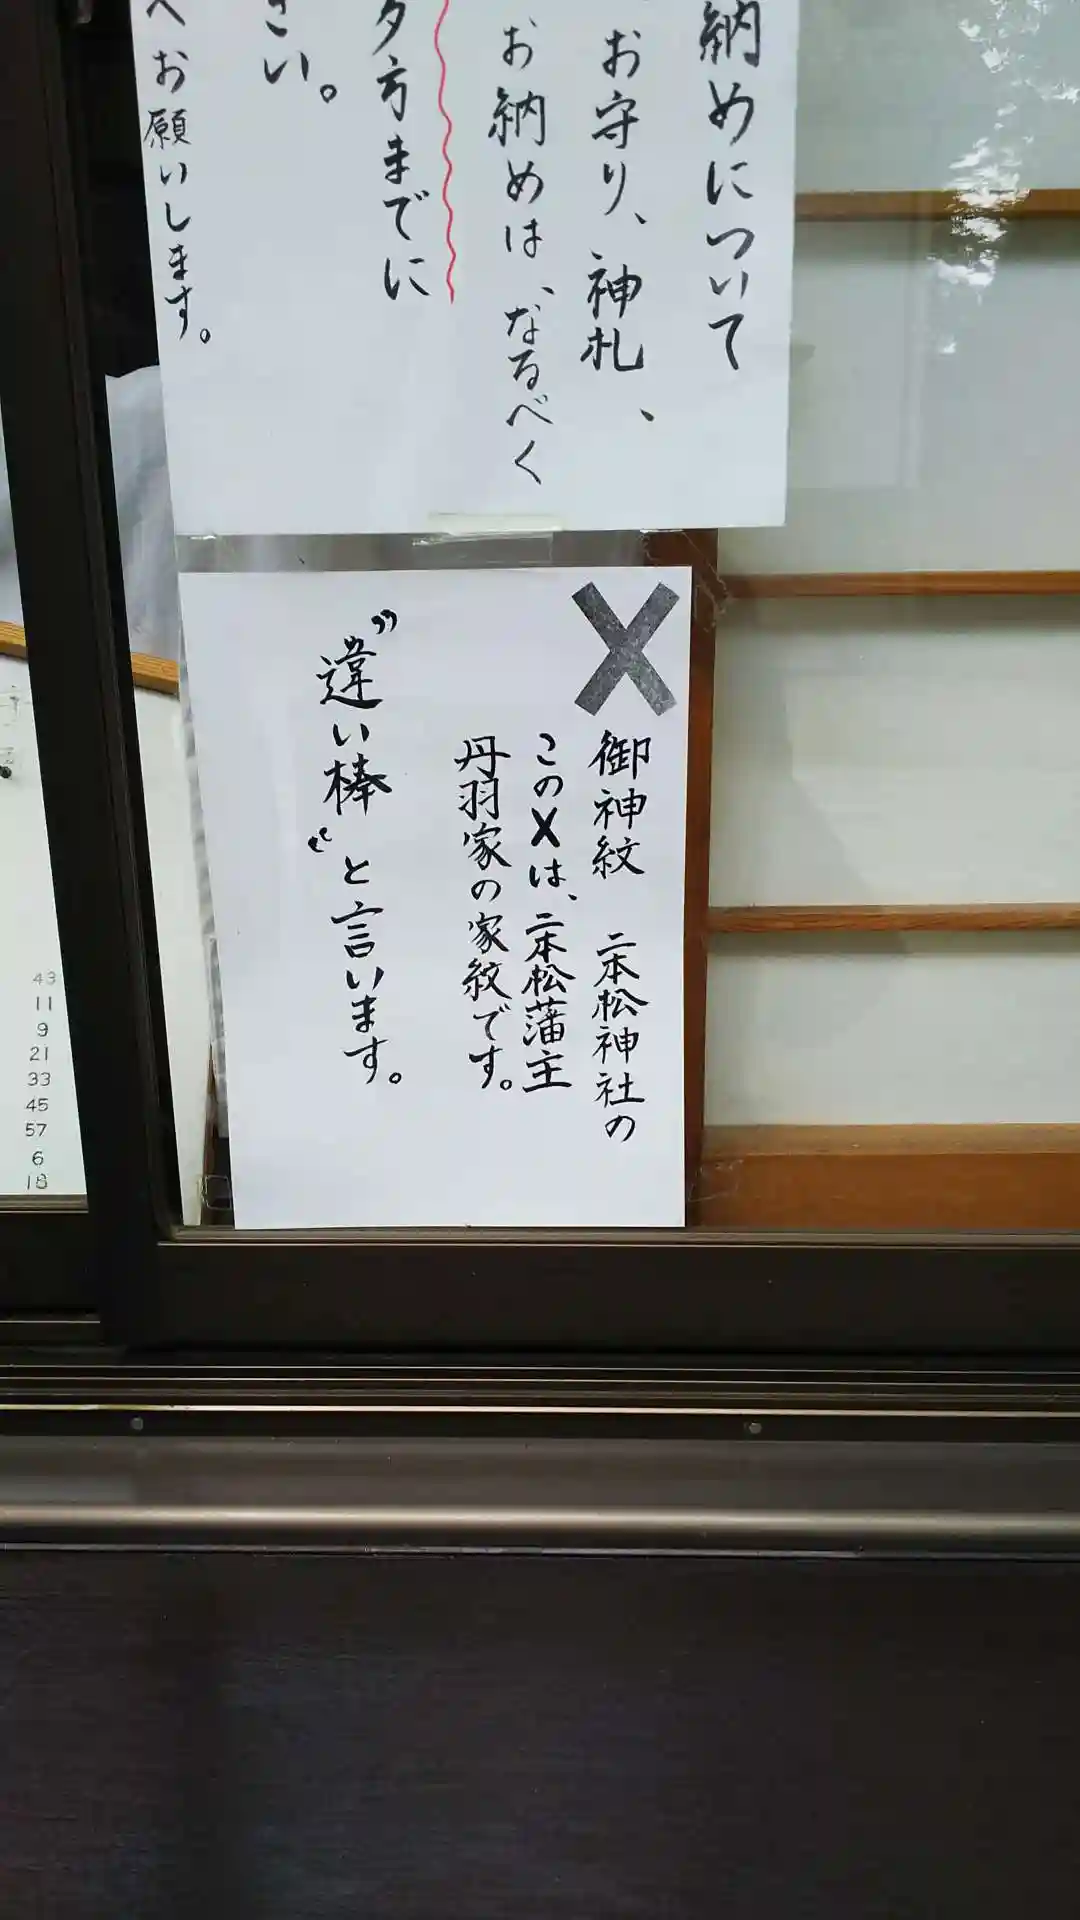 納めについて
お守り、神札、
お納めは、なるべく
夕方までに
さい。
へお願いします。
X
御神紋 二本松神社の
このXは、二本松藩主
丹羽家の家紋です。
〝違い棒〟と言います。
43
11
9
21
33
45
57
6
18